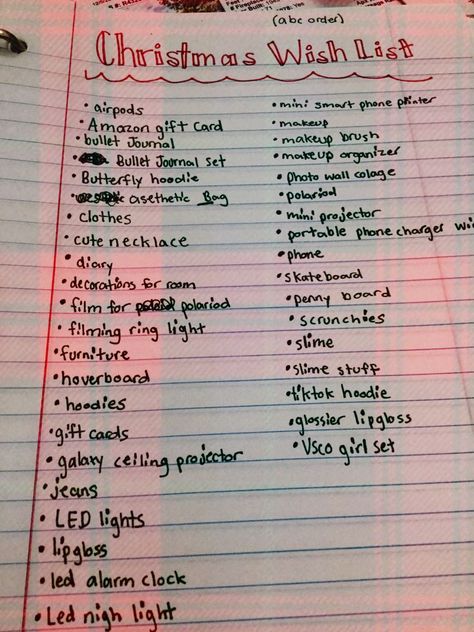 (abc order)
Christmas Wish List
• airpods
• Amazon gift card
• bullet Journal
• Bullet Journal set
• Butterfly hoodie
• asethetic Bag
• clothes
• cute necklace
• diary
• decorations for room
• film for polariod
• filming ring light
• furniture
• hoverboard
• hoodies
• gift cards
• galaxy ceiling projector
• jeans
• LED lights
• lipgloss
• led alarm clock
• Led nigh light
• mini smart phone printer
• makeup
• makeup brush
• makeup organizer
• photo wall colage
• polariod
• mini projector
• portable phone charger
• phone
• skateboard
• penny board
• scrunchies
• slime
• slime stuff
• tiktok hoodie
• glossier lipgloss
• Vsco girl set